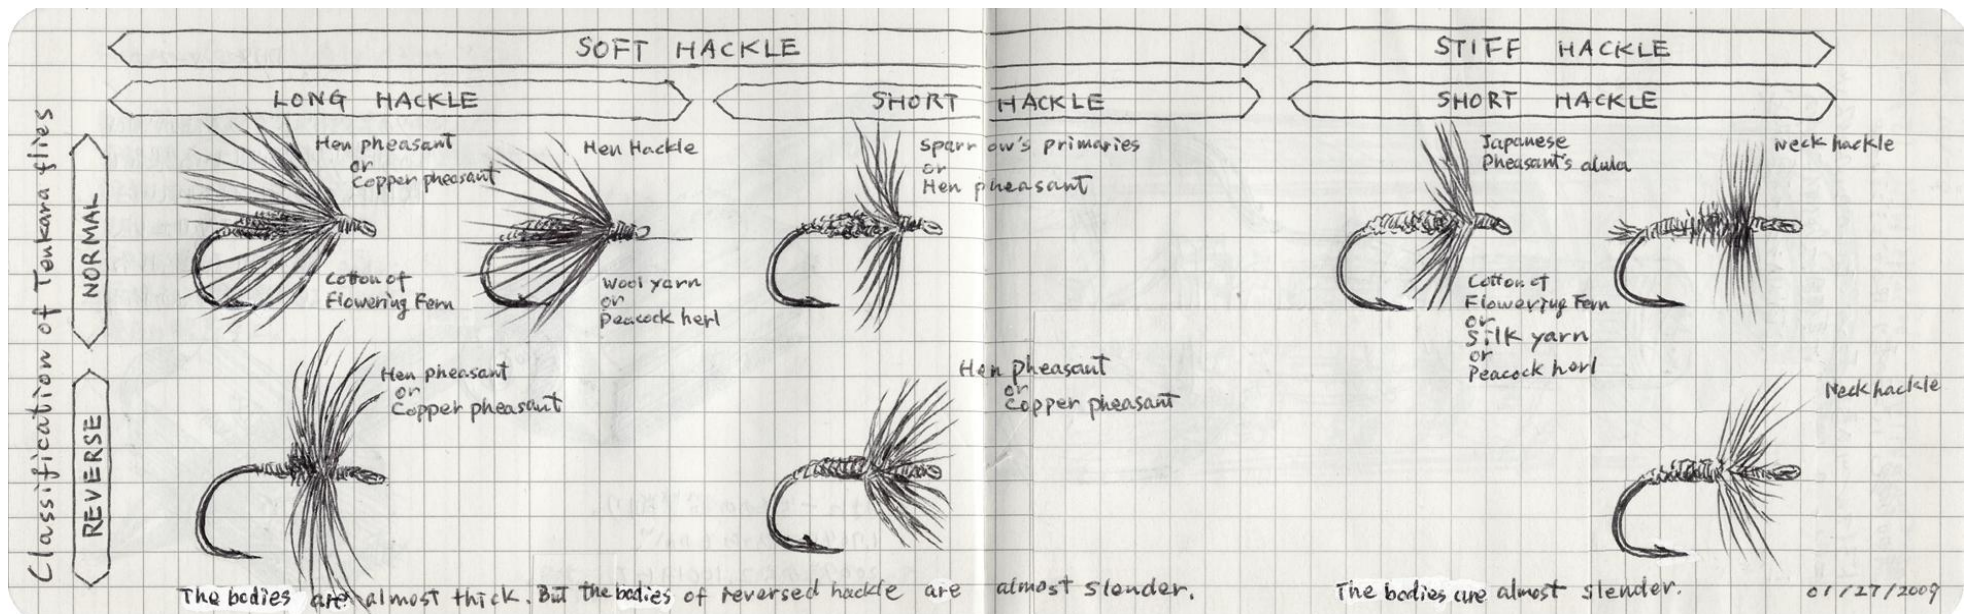 SOFT HACKLE
STIFF HACKLE
LONG HACKLE
SHORT HACKLE
SHORT HACKLE
Classification of Tenkara flies
NORMAL
Hen pheasant
or
Copper pheasant
Cotton of
Flowering Fern
Hen Hackle
Wool yarn
or
Peacock herl
Sparrow's primaries
or
Hen pheasant
Japanese
Pheasant's alula
Cotton of
Flowering Fern
or
Silk yarn
or
Peacock herl
Neck hackle
REVERSE
Hen pheasant
or
Copper pheasant
Hen pheasant
or
Copper pheasant
Neck hackle
The bodies are almost thick. But the bodies of reversed hackle are almost slender.
The bodies are almost slender.
01/27/2009